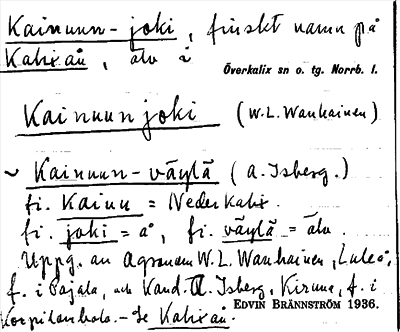 Kainuun-joki, finskt namn på
Kalixån, älv i
Överkalix sn o. tg. Norrb. l.
Kainuunjoki (W.L. Wanhainen)
~ Kainuun-väylä (A. Isberg.)
fi. Kainu = Nederkalix.
fi. joki = å, fi. väylä = älv.
Uppg. av Agronom W.L. Wanhainen, Luleå,
f. i Pajala, och Kand. A. Isberg, Kiruna, f. i
EDVIN BRÄNNSTRÖM 1936.
Korpilombolo. - Se Kalixån.